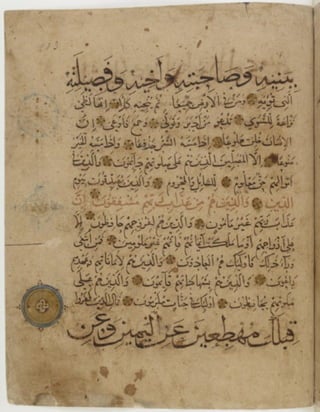 ببنيه وصاحبته وأخيه وفصيلته
التي تؤويه ومن في الأرض جميعا ثم ينجيه كلا إنها لظى
نزاعة للشوى تدعو من أدبر وتولى وجمع فأوعى إن
الإنسان خلق هلوعا إذا مسه الشر جزوعا وإذا مسه الخير
منوعا إلا المصلين الذين هم على صلاتهم دائمون والذين في
أموالهم حق معلوم للسائل والمحروم والذين يصدقون بيوم
الدين والذين هم من عذاب ربهم مشفقون إن
عذاب ربهم غير مأمون والذين هم لفروجهم حافظون إلا
على أزواجهم أو ما ملكت أيمانهم فإنهم غير ملومين فمن ابتغى
وراء ذلك فأولئك هم العادون والذين هم لأماناتهم وعهدهم
راعون والذين هم بشهاداتهم قائمون والذين هم على
صلاتهم يحافظون أولئك في جنات مكرمون فمال الذين كفروا
قبلك مهطعين عن اليمين وعن